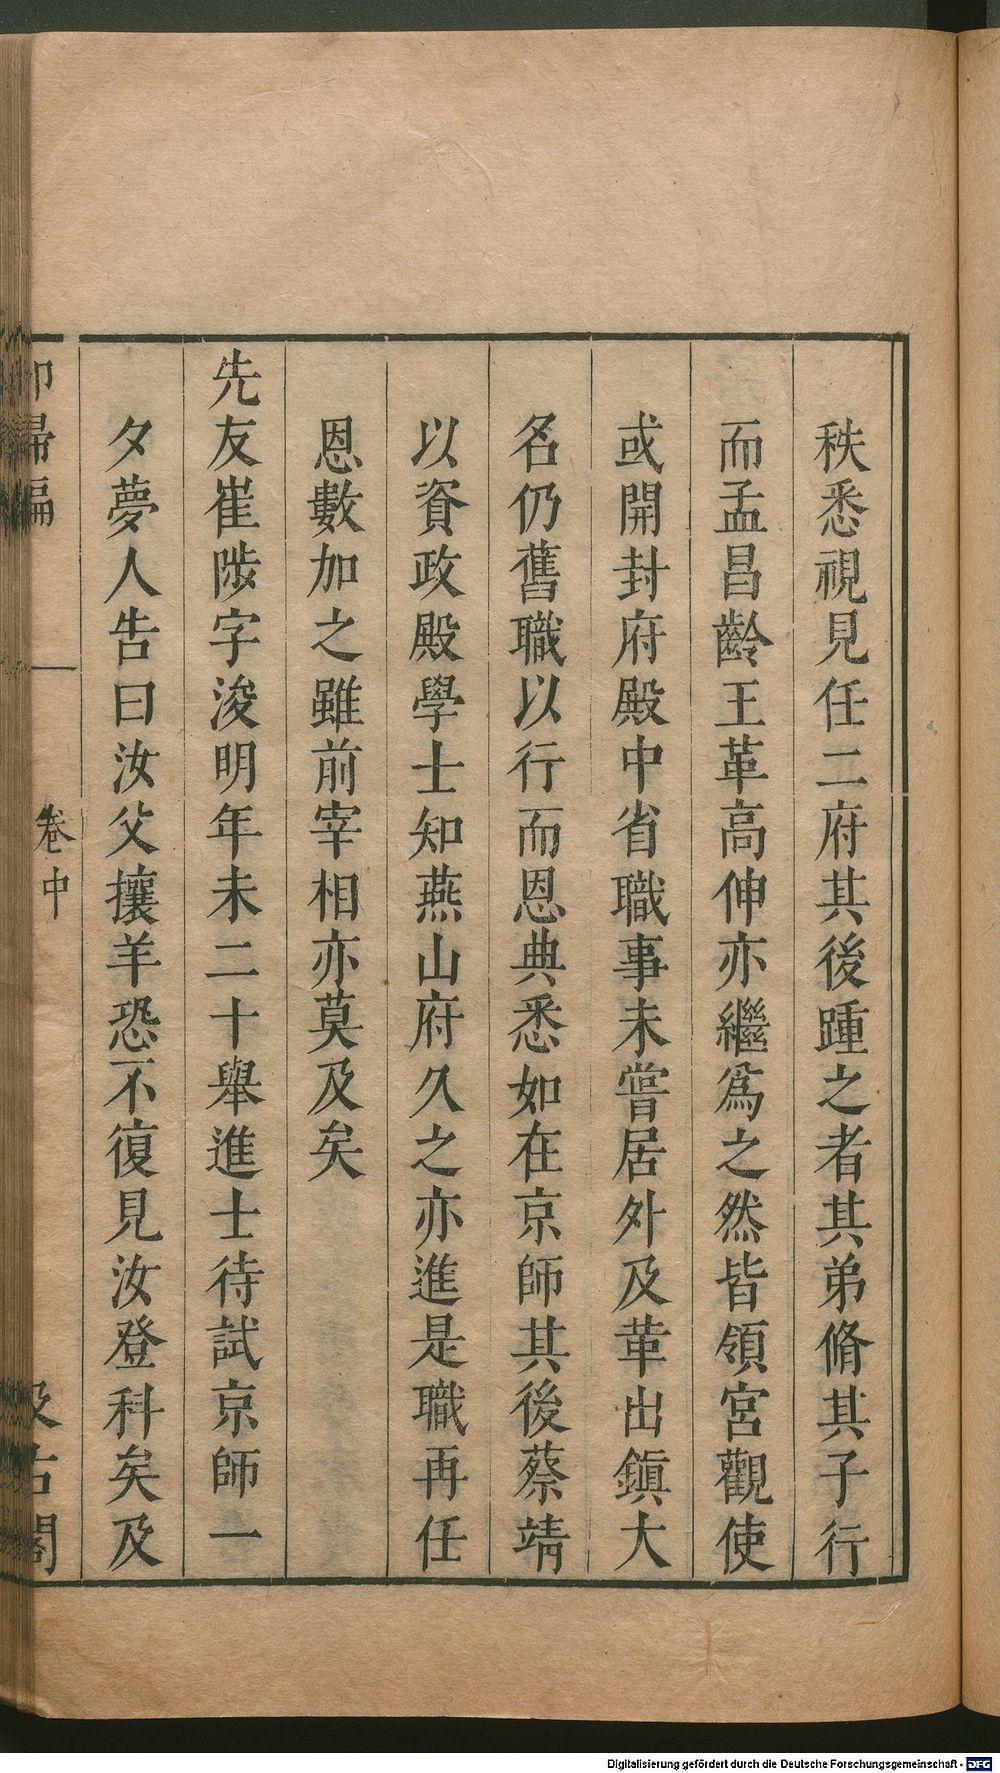 秩悉視見任二府其後踵之者其弟脩其子行
而孟昌齡王革高伸亦繼爲之然皆領宮觀使
或開封府殿中省職事未嘗居外及革出鎭大
名仍舊職以行而恩典悉如在京師其後蔡靖
以資政殿學士知燕山府久之亦進是職再任
恩數加之雖前宰相亦莫及矣
先友崔陟字浚明年未二十舉進士待試京師一
夕夢人告曰汝父攘羊恐不復見汝登科矣及
卻掃編
卷中
汲古閣
Digitalisierung gefördert durch die Deutsche Forschungsgemeinschaft - DFG